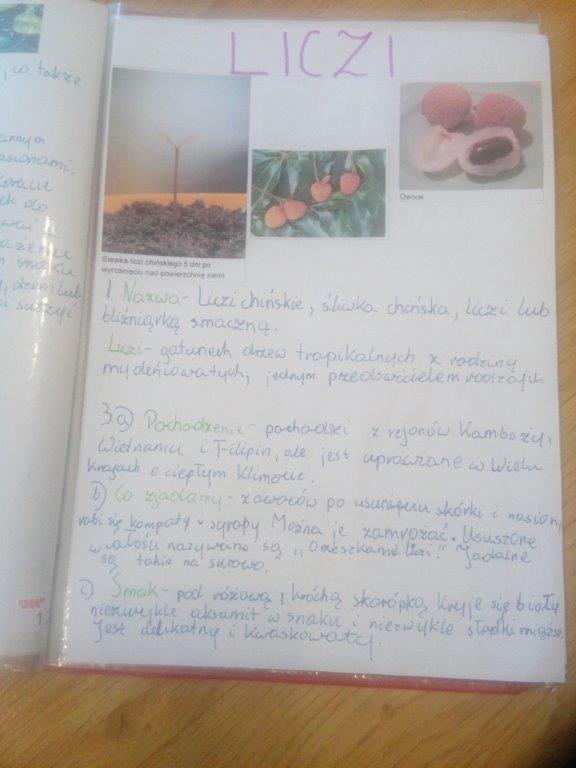 LICZI
, co także
annym
asionami.
Owoce
Siewka liczi chińskiego 5 dni po
wyrośnięciu nad powierzchnię ziemi
1. Nazwa - Liczi chińskie, śliwka chińska, liczi lub
bliźniarką smaczną.
Liczi - gatunek drzew tropikalnych z rodziny
mydeńcowatych, jednym przedswicielem rodzaju.
3.a) Pochodzenie - pochodzi z rejonów Kamboży,
Wietnamu i Filipin, ale jest uprawiane w wielu
krajach o ciepłym klimacie.
b) Co zjadamy - z owoców po usunięciu skórki i nasion,
robi się kompoty i syropy. Można je zamrożać. Ususzone
w całości nazywane są „Orzeszkami liczi." Jadalne
są także na surowo.
c) Smak - pod różową, kruchą skorupką kryje się biały
niezwykle aksamit w smaku i niezwykle słodki miąższ.
Jest delikatny i kwaskowaty.